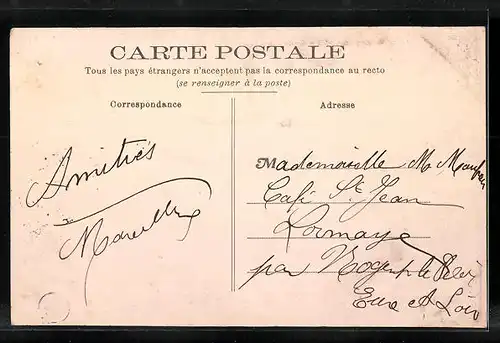 CARTE POSTALE
Tous les pays étrangers n'acceptent pas la correspondance au recto
(se renseigner à la poste)
Correspondance
Adresse
Amitiés
Mademoiselle M
Café St Jean
Lormaye
par Nogent le Roi
Eure et Loir